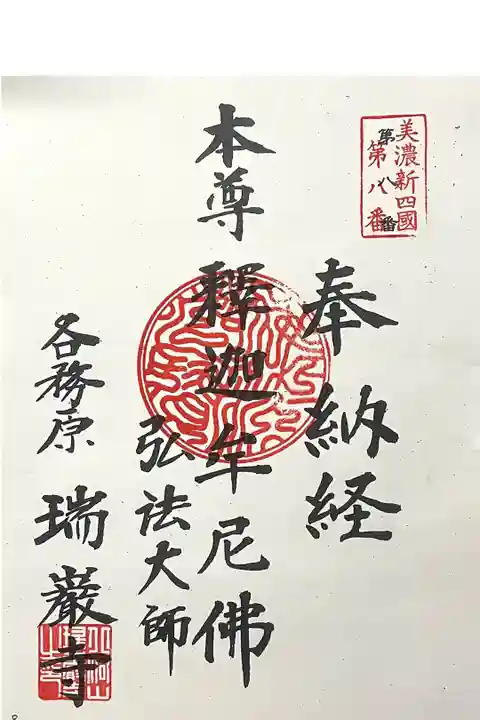 美濃新四國
第八番
第八番
奉納経
本尊釋迦牟尼佛
弘法大師
各務原 瑞巖寺